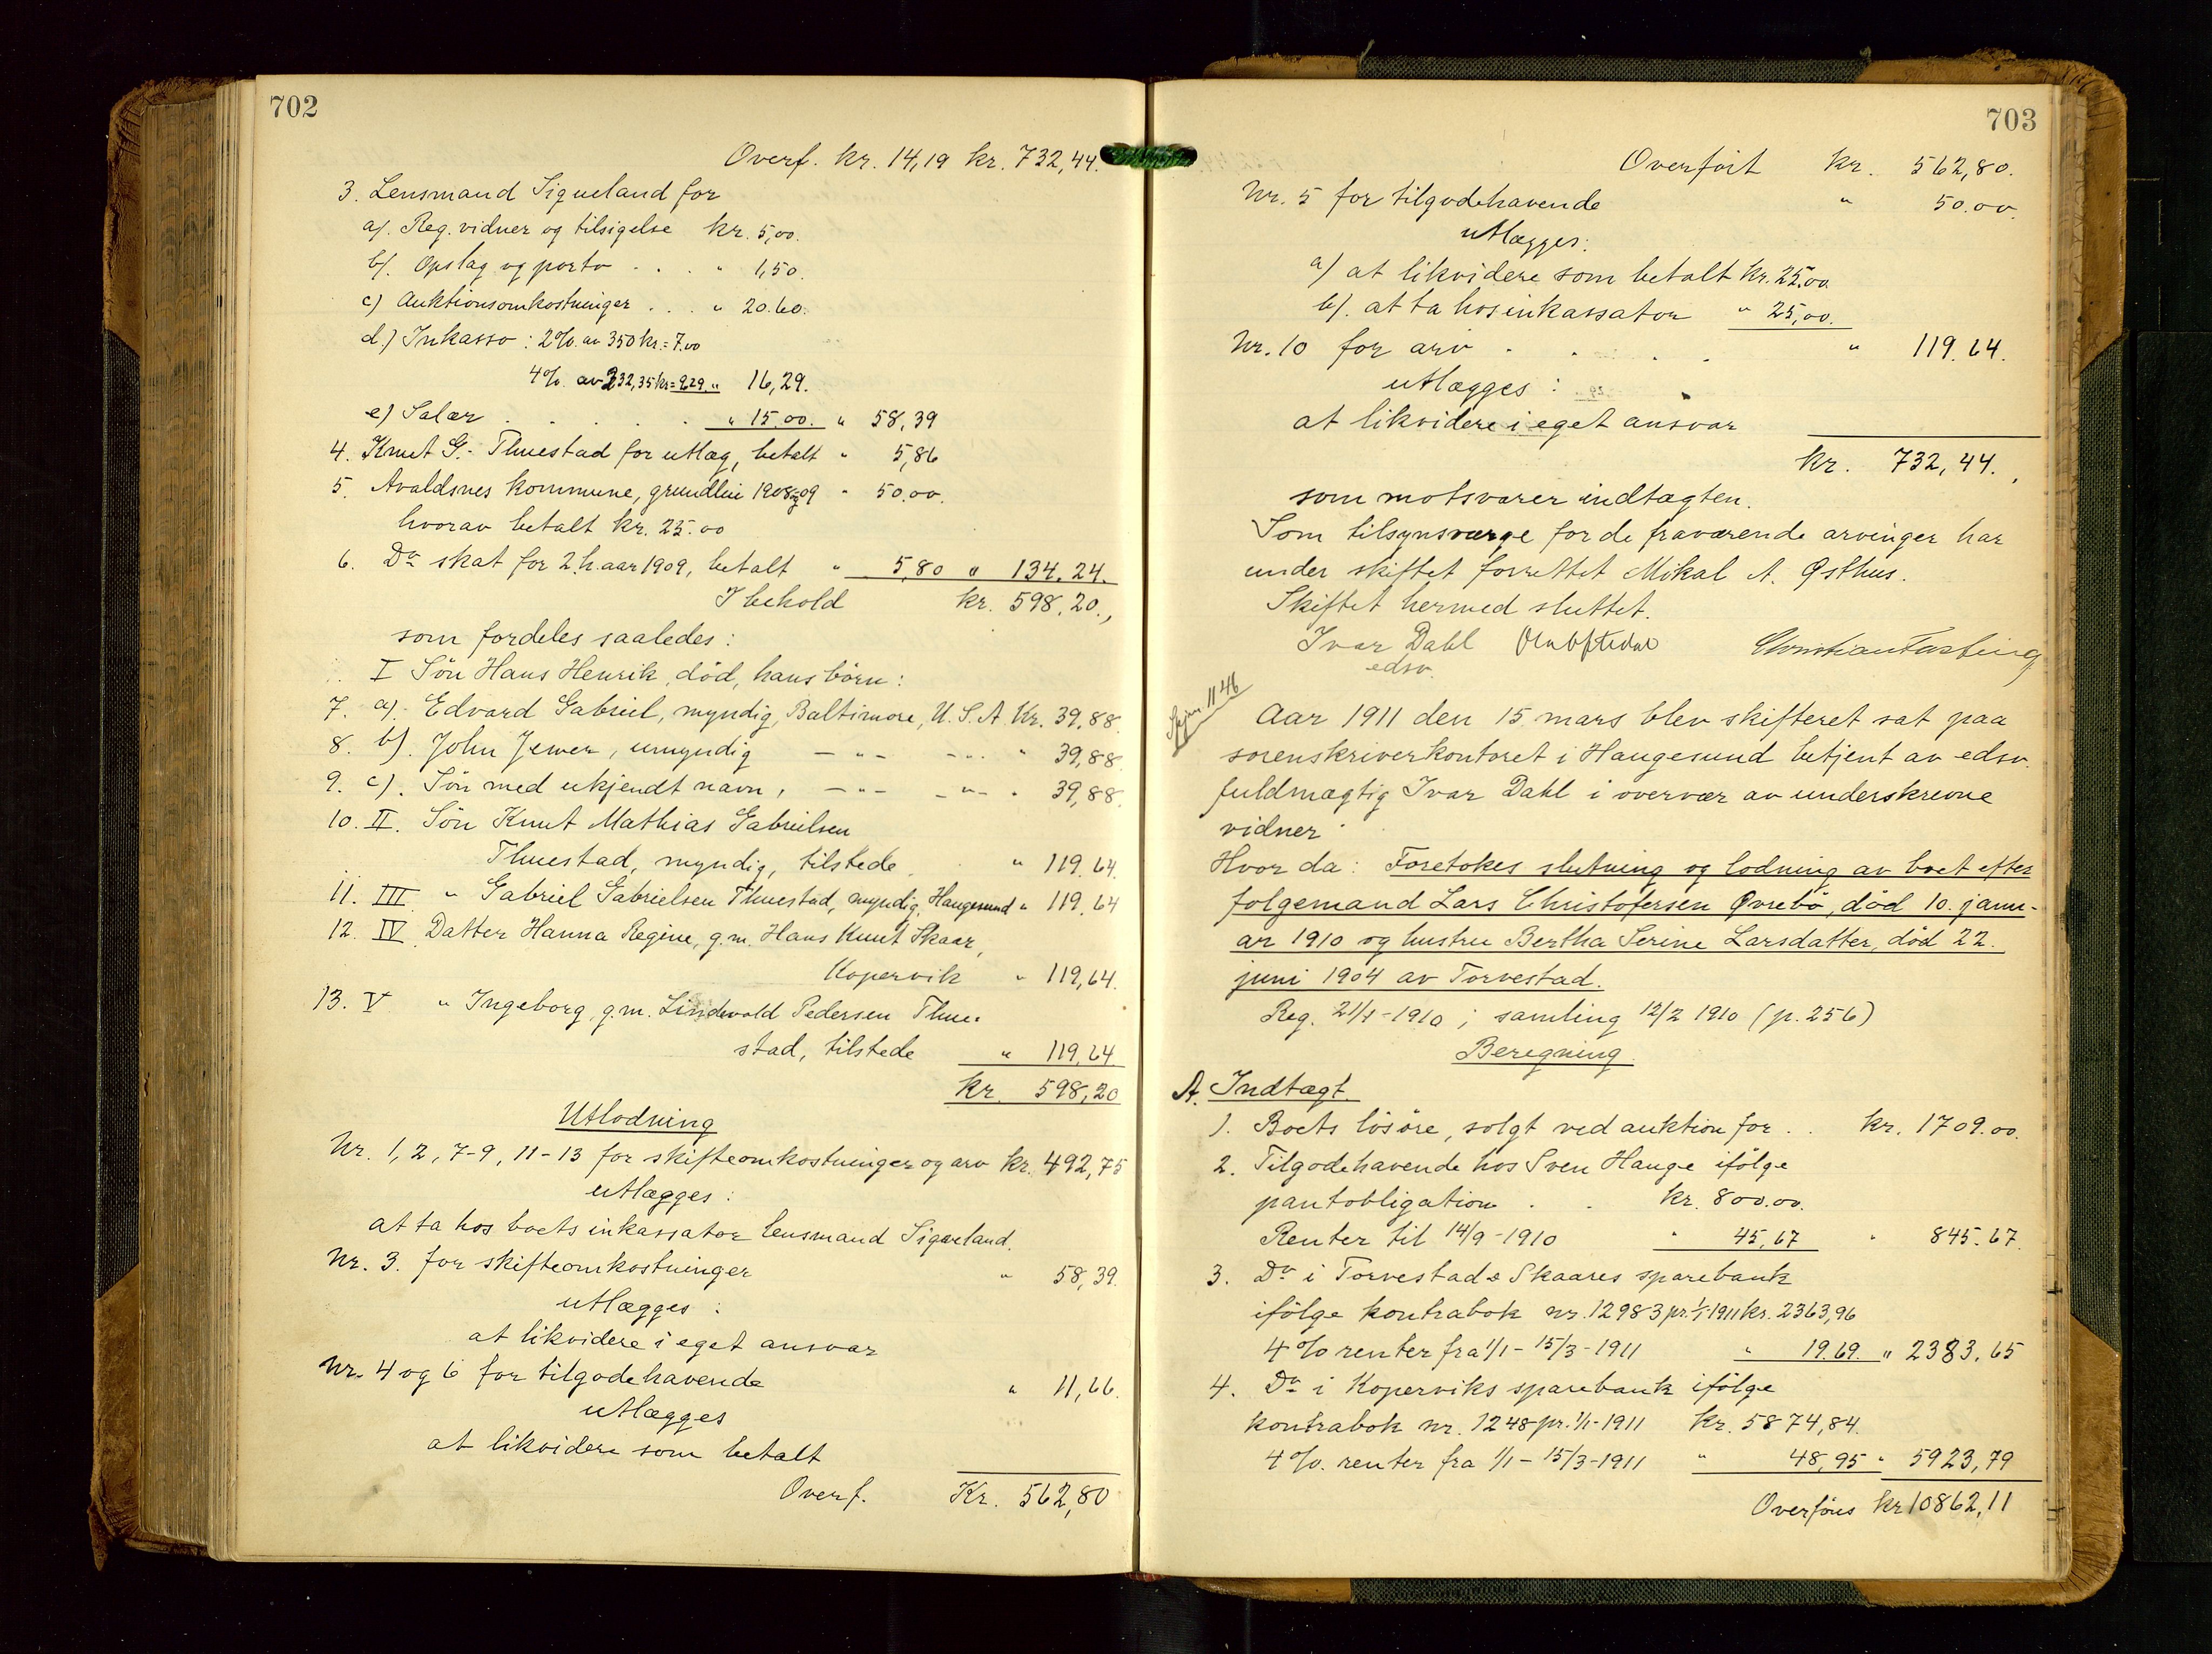 702
Overf. kr. 14,19 kr. 732,44.
3. Lensmand Sigveland for
a). Reg. vidner og tilsigelse kr. 5,00.
b). Opslag og porto . . . " 1,50.
c) Auktionsomkostninger . . . " 20.60.
d.) Inkasso: 2% av 350 kr. = 7.00
4% av 232,35 kr = 9.29 " 16,29.
e) Salær . . . . . " 15.00. " 58,39
4. Knut G. Thuestad for utlæg, betalt " 5,86
5. Avaldsnes kommune, grundleie 1908 og 09 " 50.00.
hvorav betalt kr. 25.00
6. Do skat for 2. h. aar 1909, betalt " 5,80 " 134.24.
I behold kr. 598,20.,
som fordeles saaledes:
I Sön Hans Henrik, död, hans börn:
7. a). Edvard Gabriel, myndig, Baltimore, U.S.A. Kr. 39,88
8. b). John Jewer, umyndig — " — — " — " 39,88.
9. c). Sön med ukjendt navn, — " — — " — " 39,88.
10. II. Sön Knut Mathias Gabrielsen
Thuestad, myndig, tilstede . " 119.64.
11. III " Gabriel Gabrielsen Thuestad, myndig, Haugesund " 119,64
12. IV Datter Hanna Regine, g.m. Hans Knut Skaar,
Kopervik " 119,64.
13. V " Ingeborg, g.m. Lindevald Pedersen Thue-
stad, tilstede " 119,64.
Kr. 598,20
Utlodning
Nr. 1, 2, 7-9, 11-13 for skifteomkostninger og arv kr. 492,75
utlægges:
at ta hos boets inkassator lensmand Sigveland.
Nr. 3. for skifteomkostninger " 58,39.
utlægges:
at likvidere i eget ansvar
Nr. 4 og 6 for tilgodehavende " 11,66.
utlægges
at likvidere som betalt
Overf. Kr. 562,80
703
Overført kr. 562,80.
Nr. 5 for tilgodehavende " 50.00.
utlægges:
a) at likvidere som betalt kr. 25.00
b). at ta hos inkassator " 25,00.
Nr. 10 for arv . . . . . " 119.64.
utlægges:
at likvidere i eget ansvar
kr. 732,44.,
som motsvarer indtægten.
Som tilsynsværge for de fraværende arvinger har
under skiftet forrettet Mikal A. Østhus.
Skiftet hermed sluttet.
Ivar Dahl Christian Fasting
edsv.
1146
Aar 1911 den 15. mars blev skifteret sat paa
sorenskriverkontoret i Haugesund betjent av edsv.
fuldmægtig Ivar Dahl i overvær av underskrevne
vidner.
Hvor da: Foretokes slutning og lodning av boet efter
følgemand Lars Christofersen Øvrebö, död 10. janu-
ar 1910 og hustru Bertha Serine Larsdatter, död 22.
juni 1904 av Torvestad.
Reg. 21/1-1910; samling 12/2 1910 (p. 256)
Beregning.
A. Indtægt.
1. Boets lösöre, solgt ved auktion for . . kr. 1709.00.
2. Tilgodehavende hos Sven Hauge ifölge
pantobligation . . kr. 800.00.
Renter til 14/9-1910 " 45,67 " 845.67.
3. Do i Torvestad & Skaares sparebank
ifölge kontrabok nr. 12983 pr. 1/1-1911 kr. 2363,96
4% renter fra 1/1 - 15/3-1911 " 19.69. " 2383,65
4. Do i Koperviks sparebank ifölge
kontrabok nr. 1248 pr. 1/1-1911 kr. 5874,84.
4%. renter fra 1/1 - 15/3-1911 " 48,95 " 5923,79
Overføres kr 10862,11